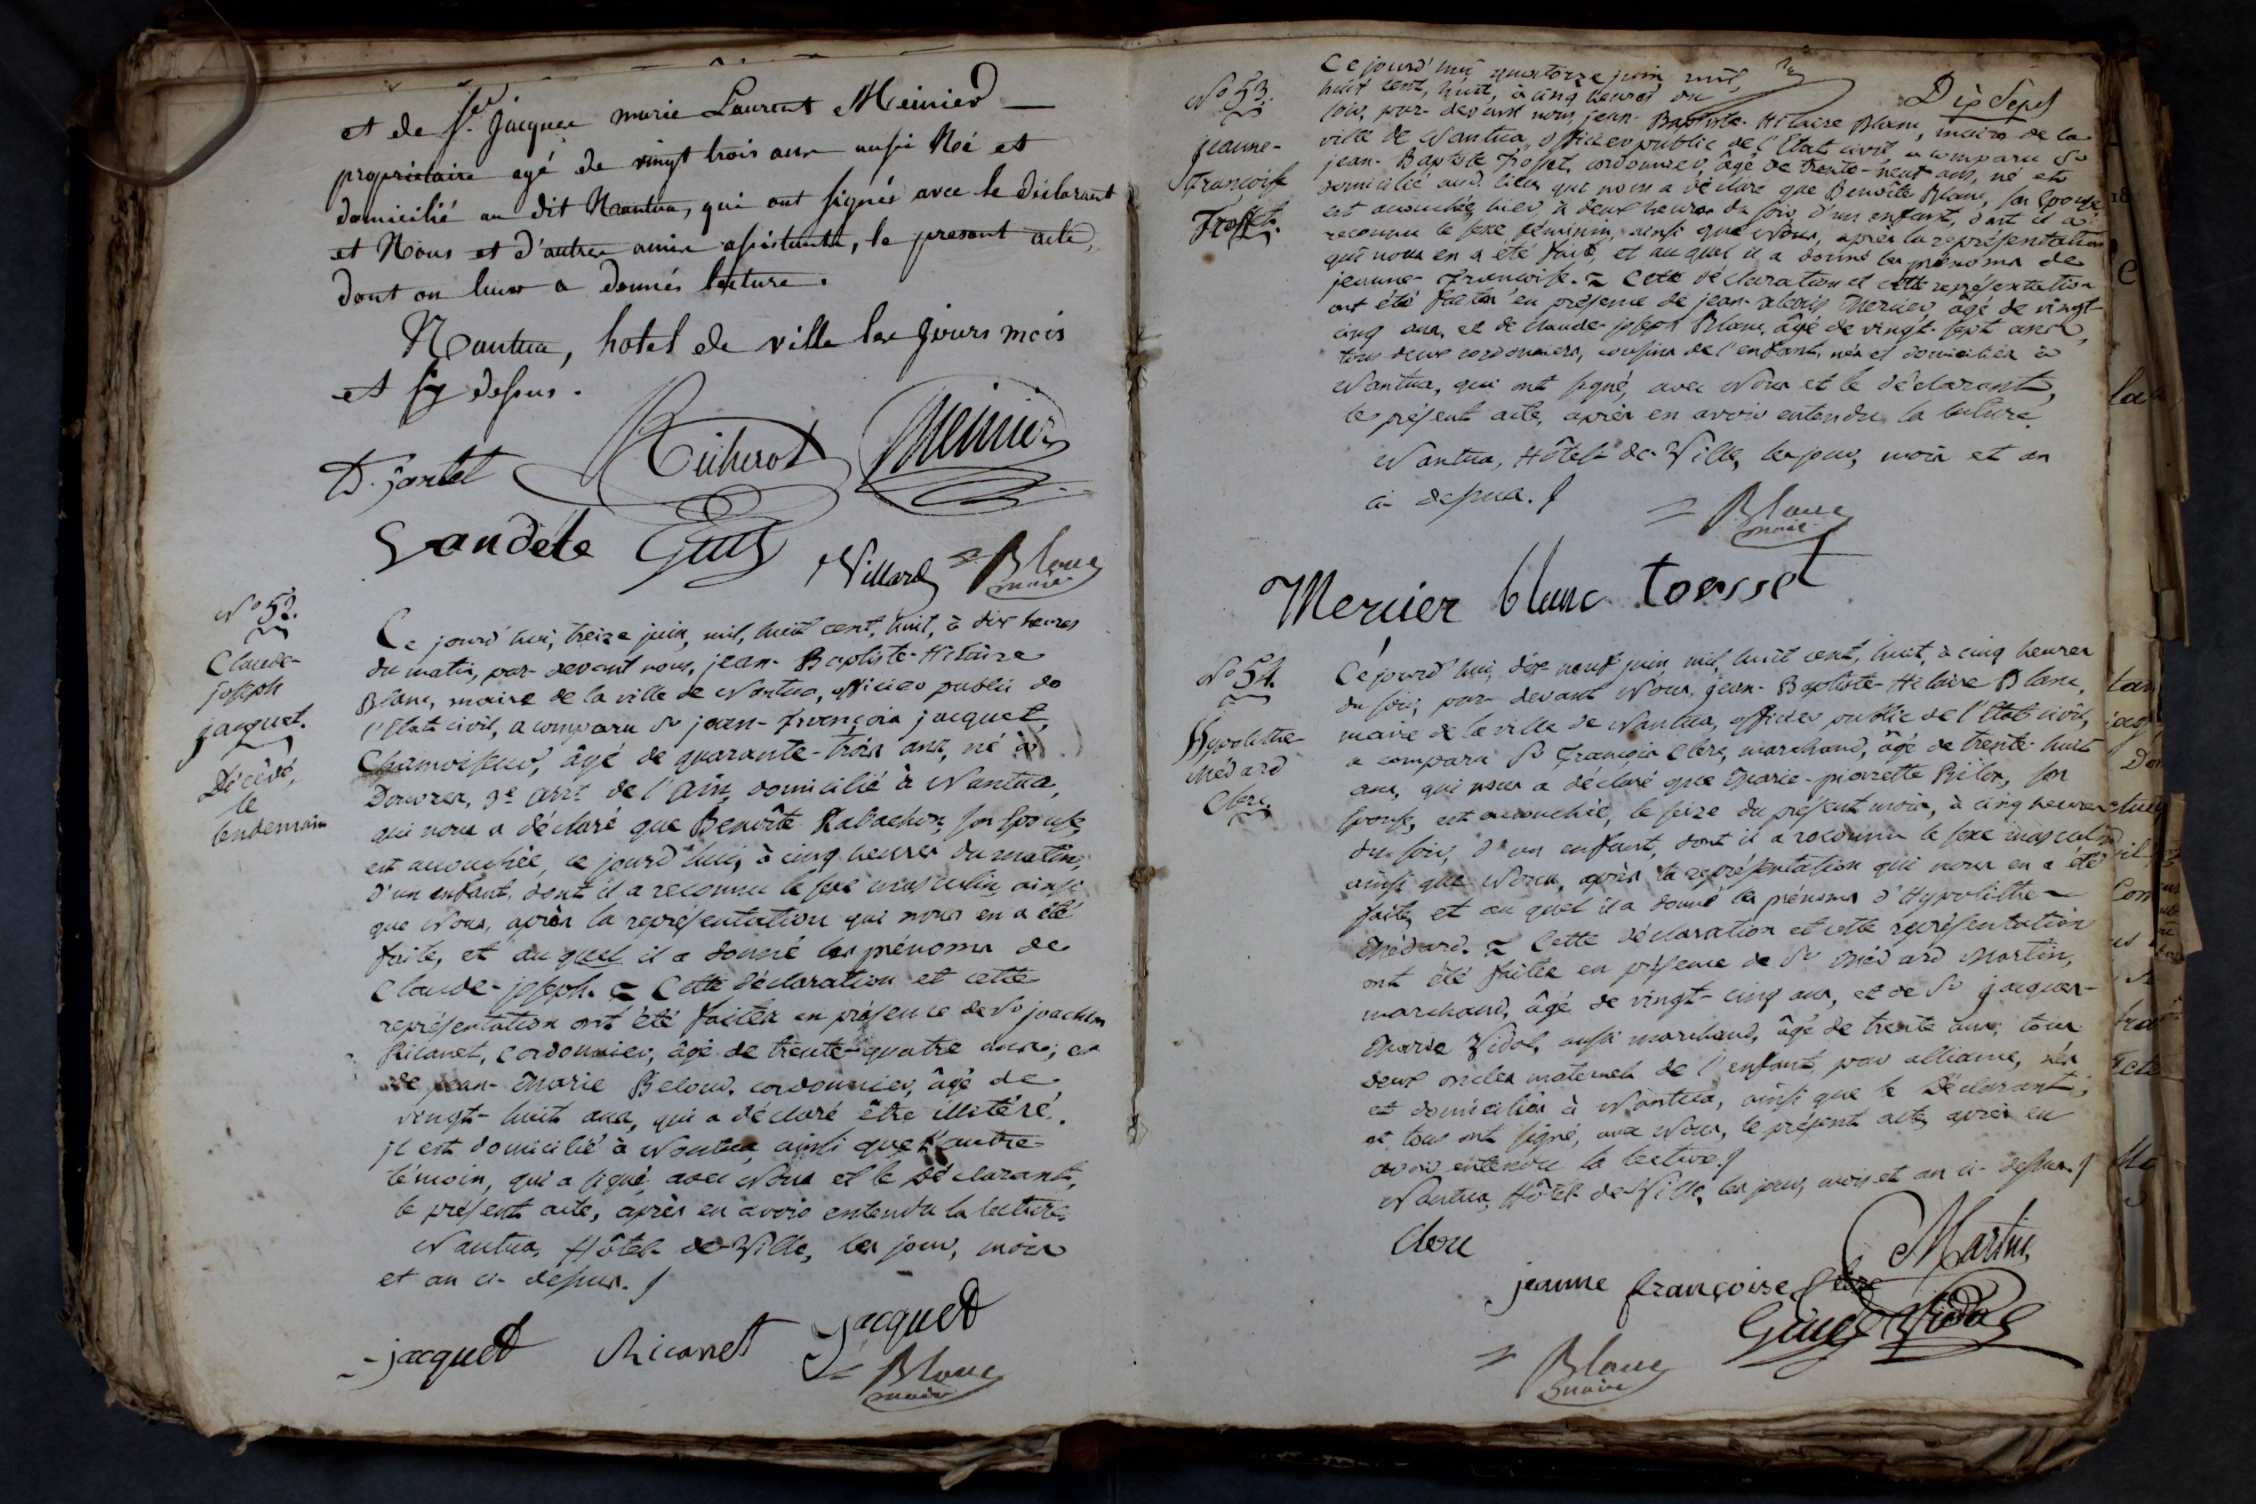 et de Sr. Jacques marie Laurent Meinier
propriétaire agé de vingt trois ans aussi Né et
domicilié au dit Nantua, qui ont signés avec le déclarant
et Nous et d'autres amis assistants, le present acte,
dont on leur a donnés lecture.
Nantua, hotel de ville les jours mois
et sy dessus.
D. jantet Meinier
Gandele Villard Blanc
maire
N° 52.
Claude-
joseph
jacquet.
Décédé,
le
lendemain
Ce jourd'hui, treize juin, mil, huit cent, huit, à dix heures
du matin, par-devant nous, jean-Baptiste-Hilaire
Blanc, maire de la ville de Nantua, officier public de
l'Etat civil, a comparu Sr jean-françois jacquet,
Chamoiseur, âgé de quarante-trois ans, né à
Douvres, 3e arrt de l'Ain, domicilié à Nantua,
qui nous a déclaré que Benoîte Rabachon, son Epouse,
est accouchée, ce jourd'hui, à cinq heures du matin,
d'un enfant, dont il a reconnu le sexe masculin, ainsi
que Nous, après la représentation qui nous en a été
faite, et au quel il a donné les prénoms de
Claude-joseph. = Cette déclaration et cette
représentation ont été faites en présence de Sr joachim
Ricanet, Cordonnier, âgé de trente-quatre ans; et
de jean-Marie Beloud, cordonnier, âgé de
vingt-huit ans, qui a déclaré être illitéré.
il est domicilié à Nantua, ainsi que l'autre
témoin, qui a signé, avec Nous et le Déclarant,
le présent acte, après en avoir entendu la lecture.
Nantua, Hôtel-de-Ville, les jour, mois
et an ci-dessus.
jacquet Ricanet jacquet
Blanc
maire
Dix Sept
N° 53.
jeanne-
françoise
Trosset.
Ce jourd'hui quatorze juin mil,
huit cent, huit, à cinq heures du
soir, par-devant nous, jean-Baptiste-Hilaire Blanc, maire de la
ville de Nantua, officier public de l'Etat civil a comparu Sr
jean-Baptiste Trosset, cordonnier, âgé de trente-neuf ans, né et
domicilié aud. lieu, qui nous a déclaré que Benoîte Blanc, son Epouse
est accouchée, hier, à deux heures du soir, d'un enfant, dont il a
reconnu le sexe féminin, ainsi que Nous, après la représentation
qui nous en a été faite, et au quel il a donné les prénoms de
jeanne-françoise. = Cette déclaration et cette représentation
ont été faites en présence de jean-alexis Mercier, âgé de vingt-
cinq ans, et de Claude-joseph Blanc, âgé de vingt-sept ans,
tous deux cordonniers, cousins de l'enfant, nés et domiciliés à
Nantua, qui ont signé, avec Nous et le déclarant,
le présent acte, après en avoir entendu la lecture.
Nantua, Hôtel-de-Ville, les jour, mois et an
ci-dessus.
Blanc
maire
Mercier blanc
N° 54.
Hypolithe-
Médard
Clerc
Ce jourd'hui, dix-neuf juin, mil, huit cent, huit, à cinq heures
du soir, par-devant Nous, jean-Baptiste-Hilaire Blanc,
maire de la ville de Nantua, officier public de l'Etat civil,
a comparu Sr François Clerc, marchand, âgé de trente-huit
ans, qui nous a déclaré que Marie-pierrette son
Epouse, est accouchée, le seize du présent mois, à cinq heures
du soir, d'un enfant, dont il a reconnu le sexe masculin
ainsi que Nous, après la représentation qui nous en a été
faite, et au quel il a donné les prénoms d'Hypolithe-
Médard. = Cette déclaration et cette représentation
ont été faites en présence de Sr Médard Martin,
marchand, âgé de vingt-cinq ans, et de Sr jacques-
Marie Vidal, aussi marchand, âgé de trente ans; tous
deux oncles maternels de l'enfant, par alliance, nés
et domiciliés à Nantua, ainsi que le Déclarant;
et tous ont signé, avec Nous, le présent acte, après en
avoir entendu la lecture.
Nantua, Hôtel-de-Ville, les jour, mois et an ci-dessus.
Clerc Martin
jeanne françoise Clerc
Vidal
Blanc
maire